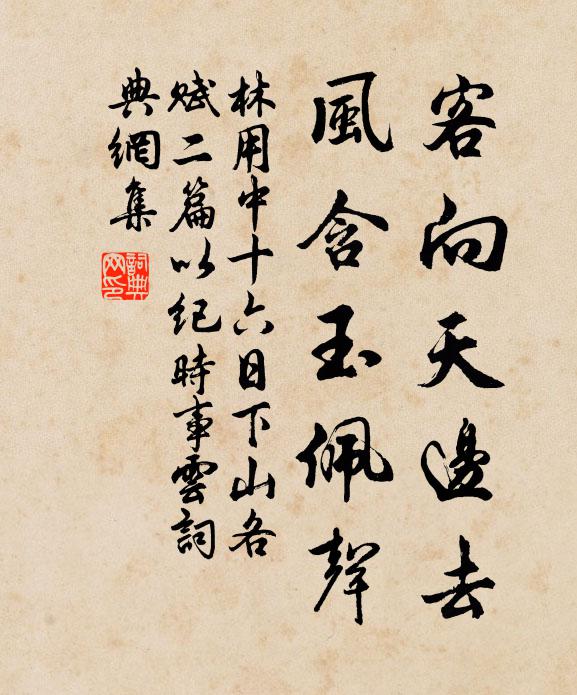 客向天邊去
風含玉佩聲
林用中十六日下山各
賦二篇以紀時事雲詞
典網集
詞典網印